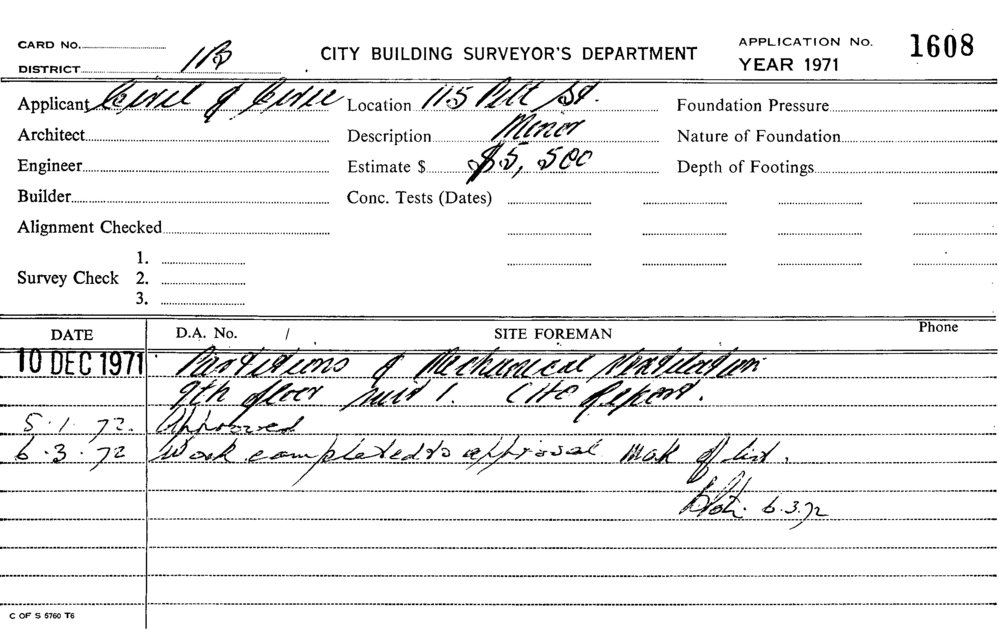 CARD No. CITY BUILDING SURVEYOR'S DEPARTMENT APPLICATION No. 1608
DISTRICT 1B YEAR 1971
Applicant Civil & Civic Location 115 Pitt St. Foundation Pressure
Architect Description Minor Nature of Foundation
Engineer Estimate $ $5,500 Depth of Footings
Builder Conc. Tests (Dates)
Alignment Checked
1.
Survey Check 2.
3.
DATE D.A. No. / SITE FOREMAN Phone
10 DEC 1971 Partitions & Mechanical Ventilation
9th floor 1. CHO Report.
5.1.72. Approved
6.3.72 Work completed to approval of list.
6.3.72
C OF S 5760 T6